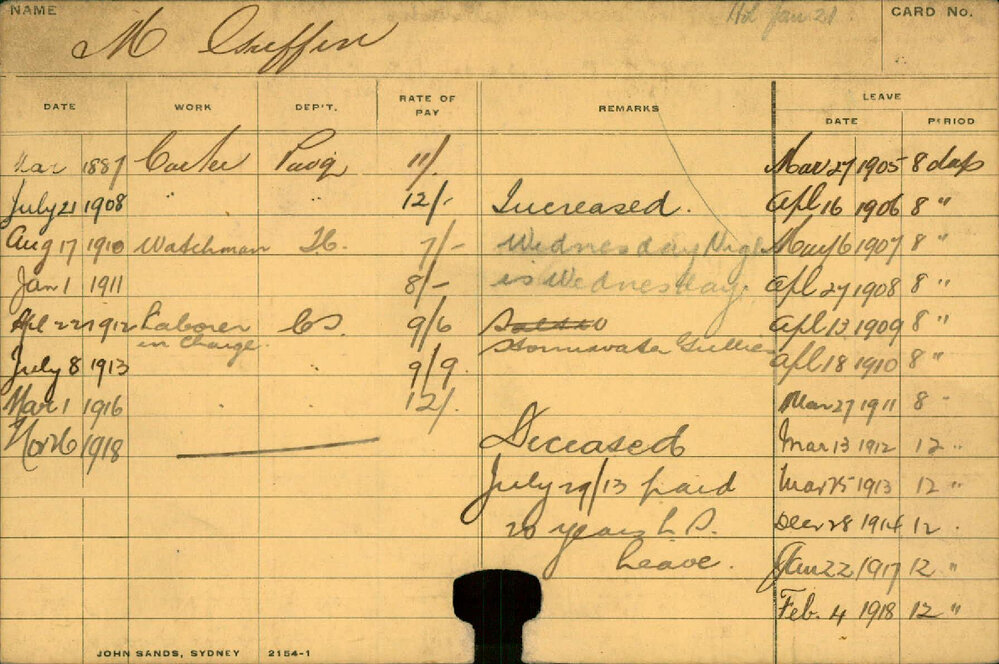 NAME
M Griffin
Jan 21
CARD No.
DATE WORK DEP'T. RATE OF PAY REMARKS LEAVE DATE PERIOD
Mar 1887 Carter 11/. Mar 27 1905 8 days
July 21 1908 " " 12/- Increased. Apl 16 1906 8 "
Aug 17 1910 Watchman 7/- Wednesday Night May 16 1907 8 "
Jan 1 1911 8/- is Wednesday. Apl 27 1908 8 "
Apl 22 1912 Laborer CS. 9/6 Apl 13 1909 8 "
in Charge. Stormwater Gullies Apl 18 1910 8 "
July 8 1913 9/9.
Mar 1 1916 12/. Mar 27 1911 8 "
Nov 26 1918 Deceased Mar 13 1912 12 "
July 29/13 paid Mar 25 1913 12 "
20 years L S. Decr 28 1914 12 .
Leave. Jan 22 1917 12 "
Feb. 4 1918 12 "
JOHN SANDS, SYDNEY 2154-1